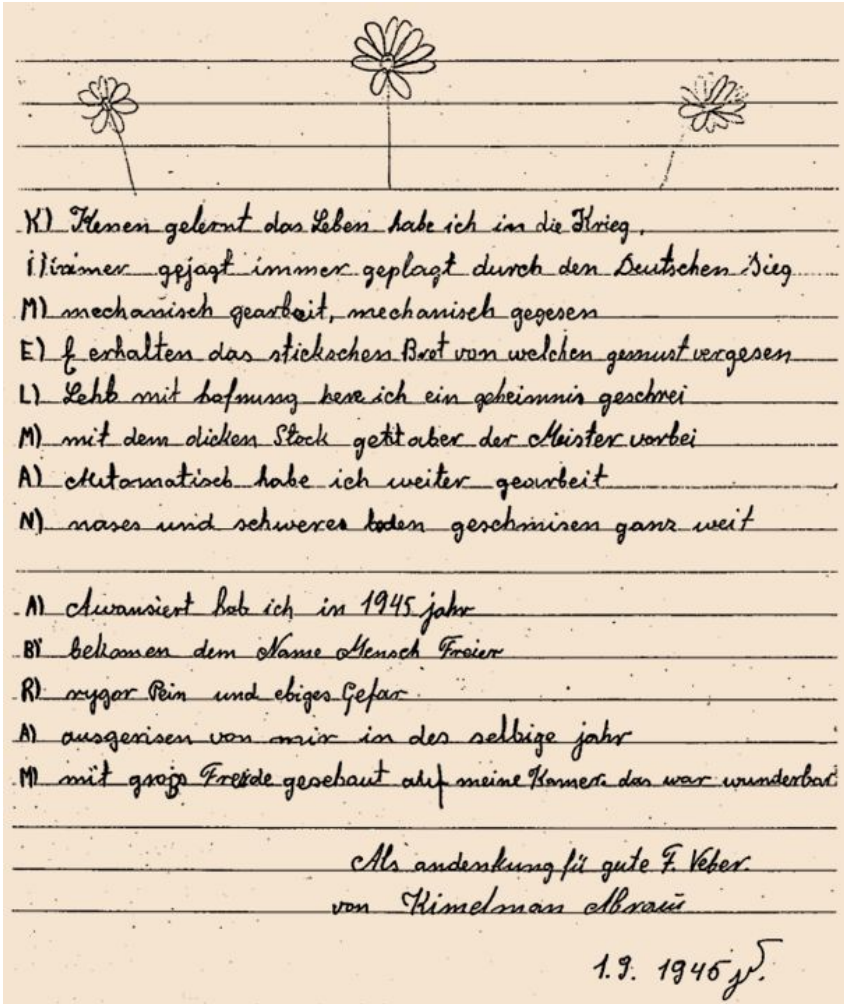 K) Kenen gelernt das Leben habe ich in die Krieg,
I) immer gejagt immer geplagt durch den Deutschen Sieg
M) mechanisch gearbeit, mechanisch gegesen
E) erhalten das stickschen Brot von welchen gemust vergesen
L) Lehb mit hofnung here ich ein geheimnis geschrei
M) mit dem dicken Stock geht aber der Meister vorbei
A) Automatisch habe ich weiter gearbeit
N) nases und schweres boden geschmisen ganz weit
A) Awansiert hab ich in 1945 jahr
B) bekomen dem Name Mensch Freier
R) rygor Pein und ebiges Gefar
A) ausgerisen von mir in des selbige jahr
M) mit groß Freide geschaut auf meine Kamer. das war wunderbar
Als andenkung fü gute F. Veber.
von Kimelman Abram
1.9. 1945